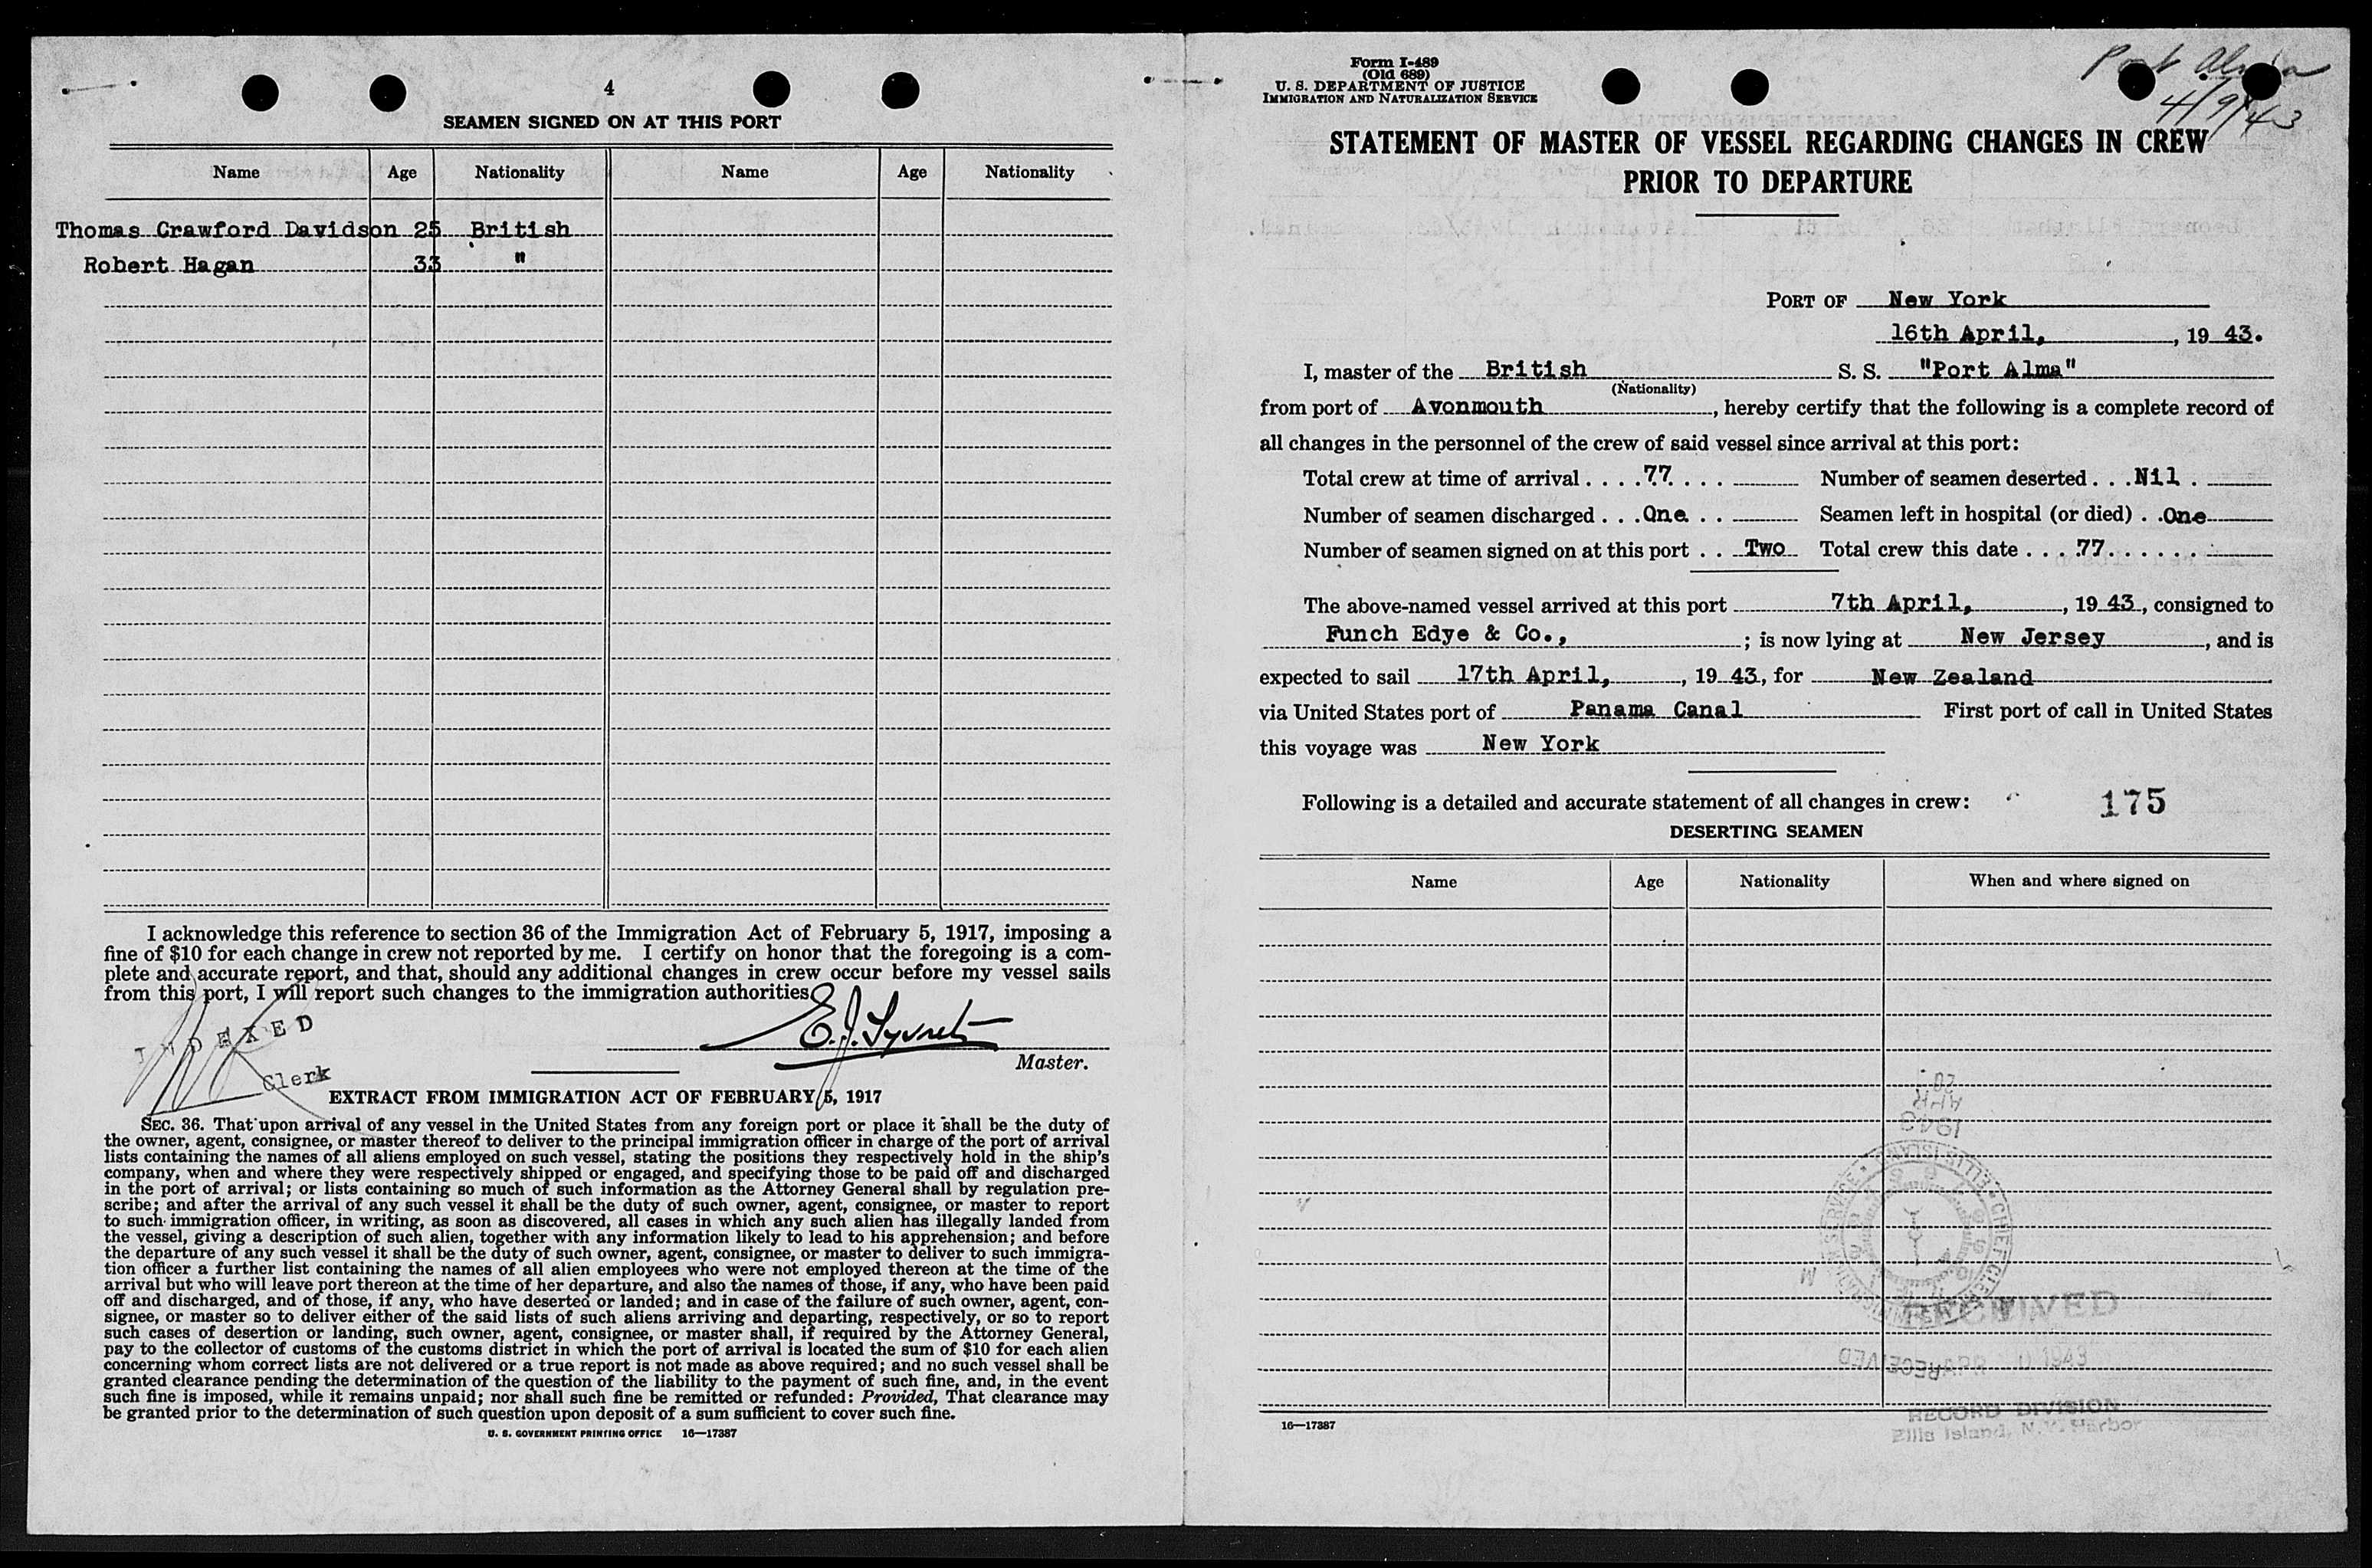 4
SEAMEN SIGNED ON AT THIS PORT
Name Age Nationality Name Age Nationality
Thomas Crawford Davidson 25 British
Robert Hagan 33 "
I acknowledge this reference to section 36 of the Immigration Act of February 5, 1917, imposing a
fine of $10 for each change in crew not reported by me. I certify on honor that the foregoing is a com-
plete and accurate report, and that, should any additional changes in crew occur before my vessel sails
from this port, I will report such changes to the immigration authorities.
INDEXED
Clerk
Master.
EXTRACT FROM IMMIGRATION ACT OF FEBRUARY 5, 1917
SEC. 36. That upon arrival of any vessel in the United States from any foreign port or place it shall be the duty of
the owner, agent, consignee, or master thereof to deliver to the principal immigration officer in charge of the port of arrival
lists containing the names of all aliens employed on such vessel, stating the positions they respectively hold in the ship's
company, when and where they were respectively shipped or engaged, and specifying those to be paid off and discharged
in the port of arrival; or lists containing so much of such information as the Attorney General shall by regulation pre-
scribe; and after the arrival of any such vessel it shall be the duty of such owner, agent, consignee, or master to report
to such immigration officer, in writing, as soon as discovered, all cases in which any such alien has illegally landed from
the vessel, giving a description of such alien, together with any information likely to lead to his apprehension; and before
the departure of any such vessel it shall be the duty of such owner, agent, consignee, or master to deliver to such immigra-
tion officer a further list containing the names of all alien employees who were not employed thereon at the time of the
arrival but who will leave port thereon at the time of her departure, and also the names of those, if any, who have been paid
off and discharged, and of those, if any, who have deserted or landed; and in case of the failure of such owner, agent, con-
signee, or master so to deliver either of the said lists of such aliens arriving and departing, respectively, or so to report
such cases of desertion or landing, such owner, agent, consignee, or master shall, if required by the Attorney General,
pay to the collector of customs of the customs district in which the port of arrival is located the sum of $10 for each alien
concerning whom correct lists are not delivered or a true report is not made as above required; and no such vessel shall be
granted clearance pending the determination of the question of the liability to the payment of such fine, and, in the event
such fine is imposed, while it remains unpaid; nor shall such fine be remitted or refunded: Provided, That clearance may
be granted prior to the determination of such question upon deposit of a sum sufficient to cover such fine.
U. S. GOVERNMENT PRINTING OFFICE 16—17387
Form I-489
(Old 689)
U. S. DEPARTMENT OF JUSTICE
IMMIGRATION AND NATURALIZATION SERVICE
Port Alma
4/9/43
STATEMENT OF MASTER OF VESSEL REGARDING CHANGES IN CREW
PRIOR TO DEPARTURE
PORT OF New York
16th April, , 19 43.
I, master of the British S. S. "Port Alma"
(Nationality)
from port of Avonmouth , hereby certify that the following is a complete record of
all changes in the personnel of the crew of said vessel since arrival at this port:
Total crew at time of arrival . . . . 77. . . . Number of seamen deserted . . . Nil .
Number of seamen discharged . . . One . . Seamen left in hospital (or died) . . One
Number of seamen signed on at this port . . Two Total crew this date . . . . 77. . . . . .
The above-named vessel arrived at this port 7th April, , 19 43 , consigned to
Funch Edye & Co., ; is now lying at New Jersey , and is
expected to sail 17th April, , 19 43, for New Zealand
via United States port of Panama Canal First port of call in United States
this voyage was New York
Following is a detailed and accurate statement of all changes in crew: 175
DESERTING SEAMEN
Name Age Nationality When and where signed on
RECEIVED
1943
RECORD DIVISION
Ellis Island, N. Y. Harbor
16—17387